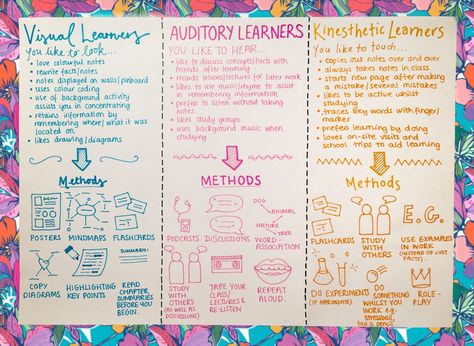 Visual Learners
You like to look...
• love colourful notes
• rewrite facts/notes
• notes displayed on walls/pinboard
• uses colour coding
• use of background activity
assists you in concentrating
• retains information by
remembering where/what it was
located on
• likes drawing/diagrams
Methods
POSTERS
MINDMAPS
FLASHCARDS
SUMMARY:
COPY
DIAGRAMS
HIGHLIGHTING
KEY POINTS
READ
CHAPTER
SUMMARIES
BEFORE YOU
BEGIN.
AUDITORY LEARNERS
YOU LIKE TO HEAR...
• like to discuss concepts/facts with
friends after learning
• records lessons/lectures for later work
• likes to use music/rhyme to assist
in remembering information
• prefers to listen without taking
notes
• likes study groups
• uses background music when
studying
METHODS
DOG
ANIMAL
NATURE
TREE
PODCASTS
DISCUSSIONS
WORD-
ASSOCIATION
STUDY
WITH
OTHERS
(AS WELL AS
DISCUSSIONS)
TAPE YOUR
CLASS/
LECTURES &
RE-LISTEN
REPEAT
ALOUD
Kinesthetic Learners
You like to touch...
• copies out notes over and over
• always takes notes in class
• starts new page after making
a mistake/several mistakes
• likes to be active whilst
studying
• traces key words with finger/
marker
• prefers learning by doing
• loves on-site visits and
school trips to aid learning
Methods
E.G.
FLASHCARDS
STUDY
WITH
OTHERS
USE EXAMPLES
IN WORK
(INSTEAD OF JUST
FACTS).
DO EXPERIMENTS
DO
SOMETHING
WHILST YOU
WORK e.g.
stressball,
tap a pencil
ROLE-
PLAY